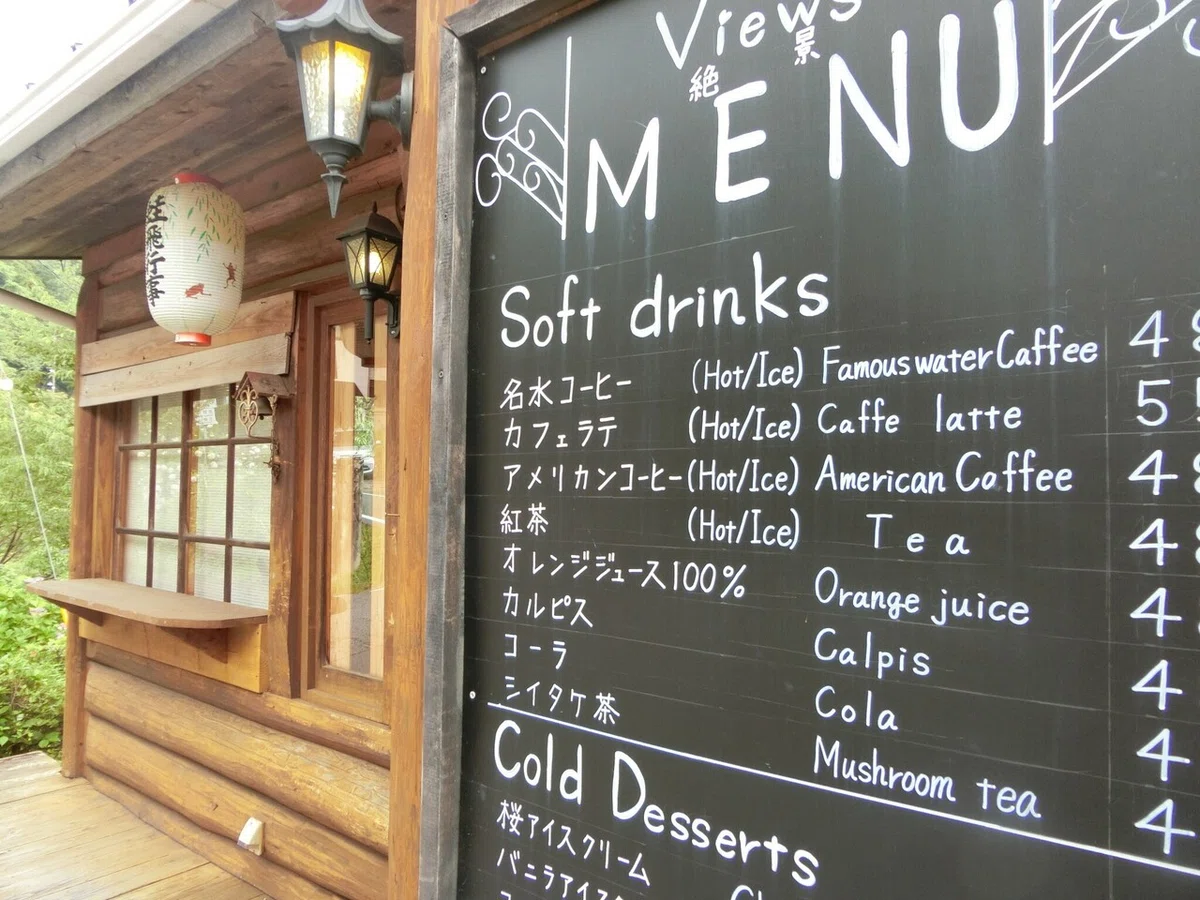 Views
絶景
MENU
蛙飛行事
Soft drinks
名水コーヒー (Hot/Ice) Famous water Caffee 4
カフェラテ (Hot/Ice) Caffe latte 5
アメリカンコーヒー (Hot/Ice) American Caffee 4
紅茶 (Hot/Ice) Tea 4
オレンジジュース100% Orange juice 4
カルピス Calpis 4
コーラ Cola 4
シイタケ茶 Mushroom tea 4
Cold Desserts
桜アイスクリーム
バニラアイス